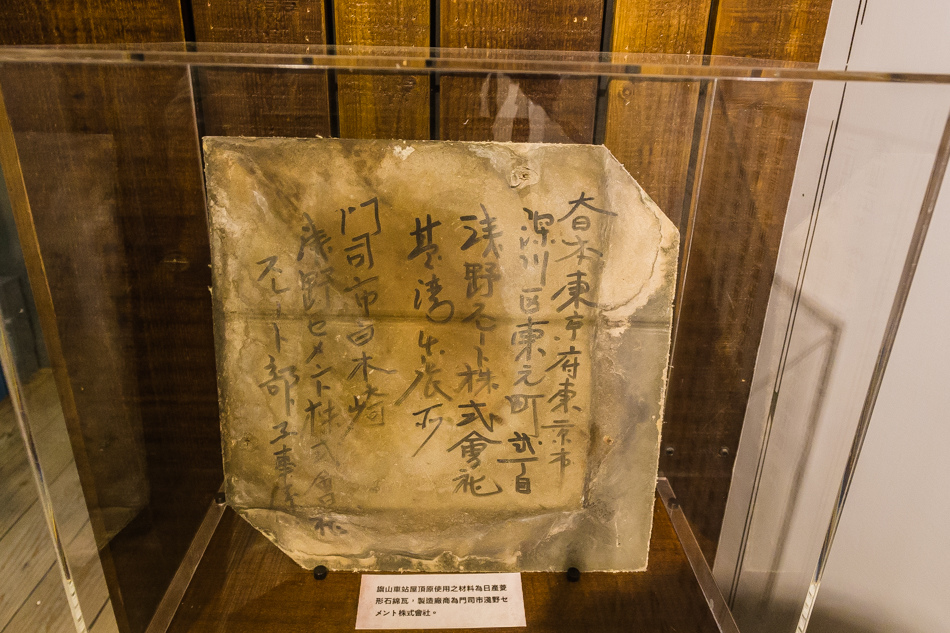 大日本東京府東京市
深川区東元町弍丁目
浅野スレート株式會社
臺湾出張所
門司市白木崎
浅野セメント株式會社
スレート部工事係
旗山車站屋頂原使用之材料為日產菱
形石綿瓦，製造廠商為門司市淺野セ
メント株式會社。